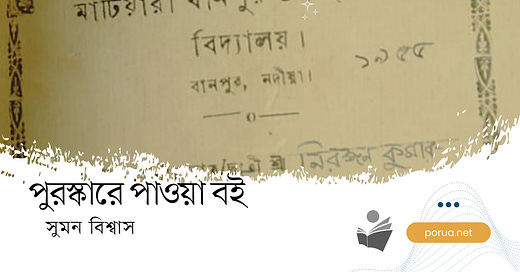 মাটিয়ারী বানপুর
বিদ্যালয়।
১৯৫৫
বানপুর, নদীয়া।
শ্রী নিরঞ্জন কুমার
পুরস্কারে পাওয়া বই
সুমন বিশ্বাস
porua.net